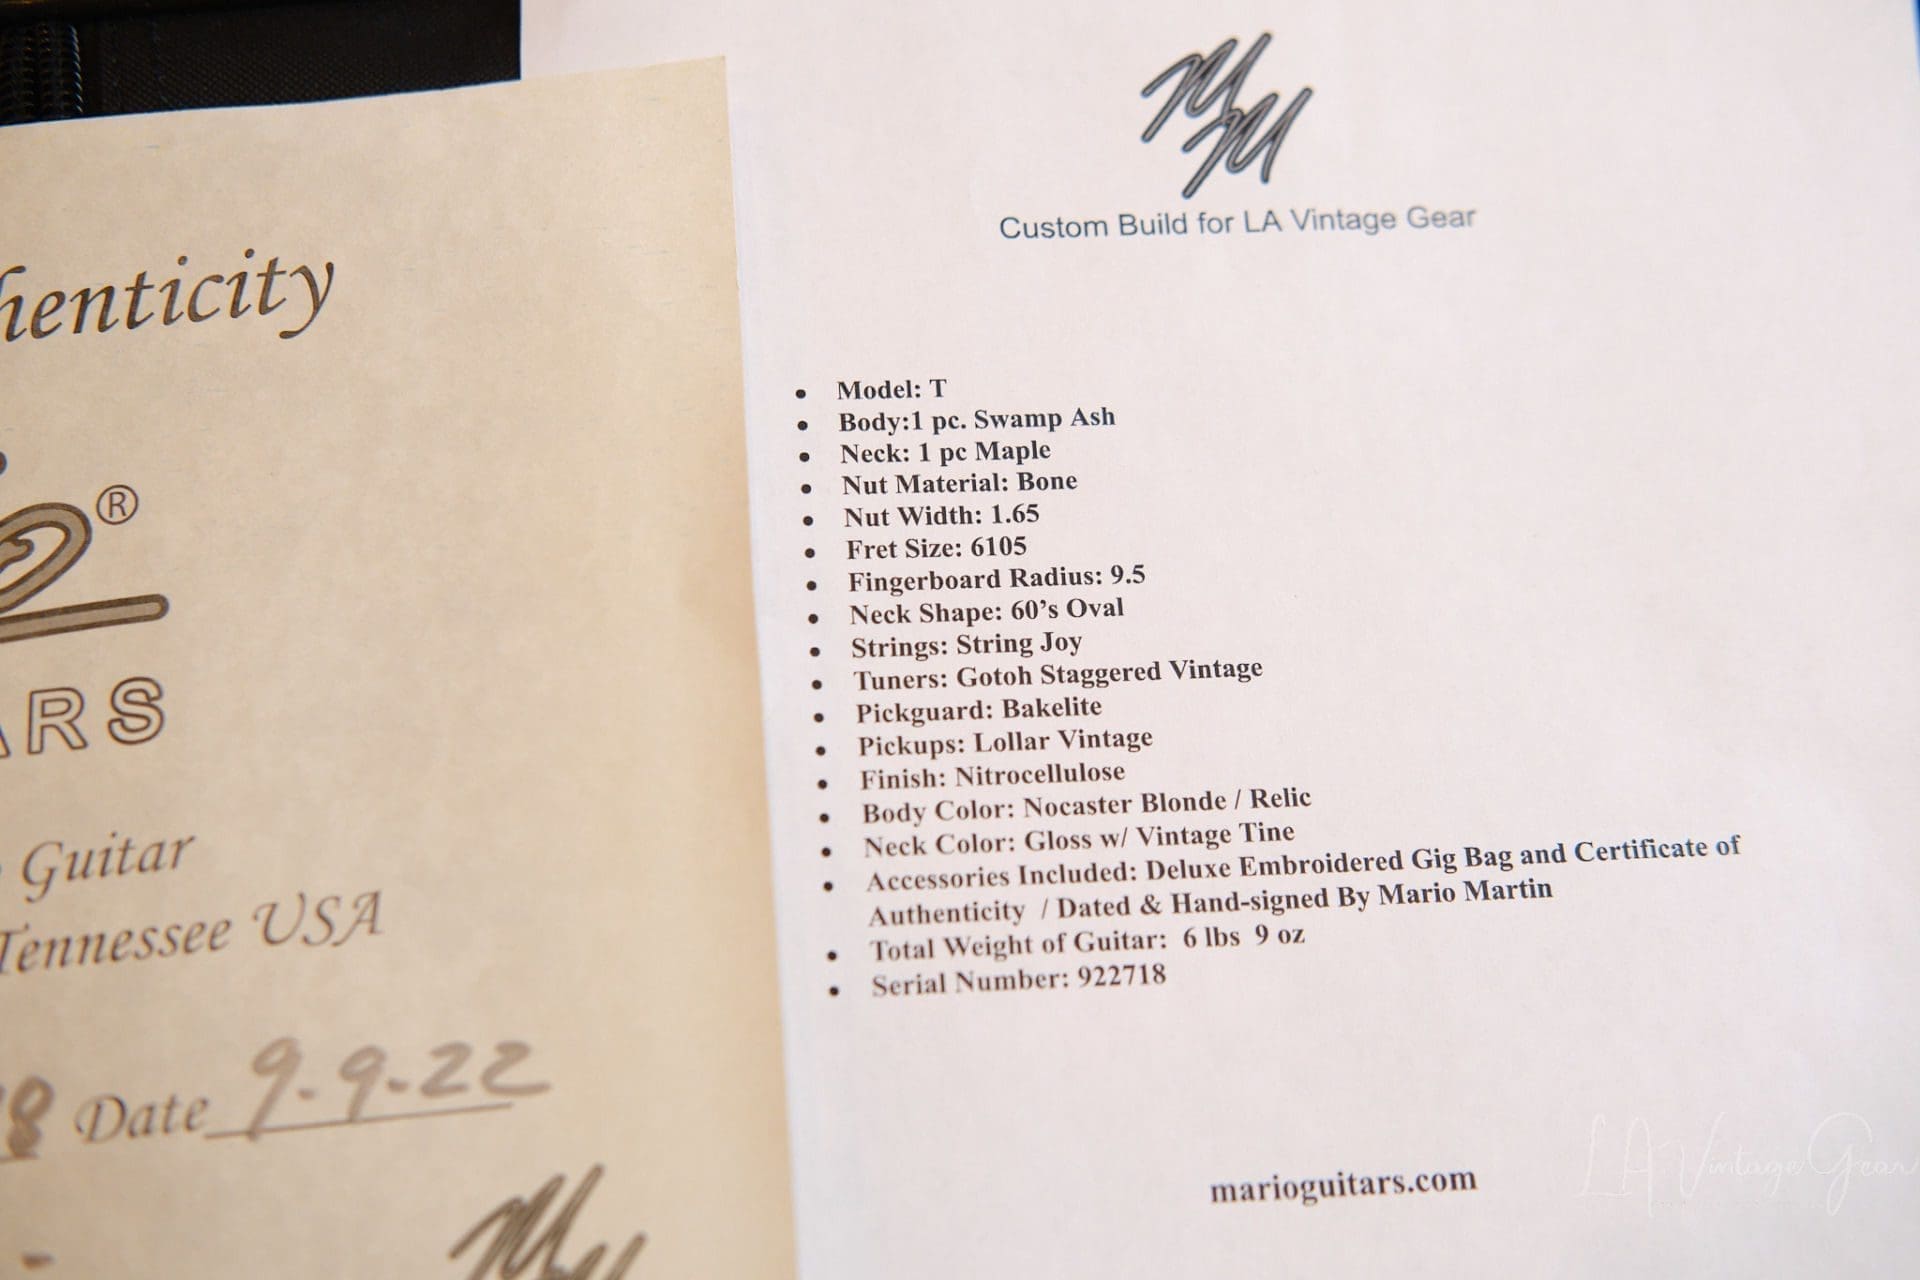 henticity
®
ARS
Guitar
Tennessee USA
8 Date 9-9-22
MM
Custom Build for LA Vintage Gear
• Model: T
• Body:1 pc. Swamp Ash
• Neck: 1 pc Maple
• Nut Material: Bone
• Nut Width: 1.65
• Fret Size: 6105
• Fingerboard Radius: 9.5
• Neck Shape: 60’s Oval
• Strings: String Joy
• Tuners: Gotoh Staggered Vintage
• Pickguard: Bakelite
• Pickups: Lollar Vintage
• Finish: Nitrocellulose
• Body Color: Nocaster Blonde / Relic
• Neck Color: Gloss w/ Vintage Tine
• Accessories Included: Deluxe Embroidered Gig Bag and Certificate of
Authenticity / Dated & Hand-signed By Mario Martin
• Total Weight of Guitar: 6 lbs 9 oz
• Serial Number: 922718
marioguitars.com
LA Vintage Gear